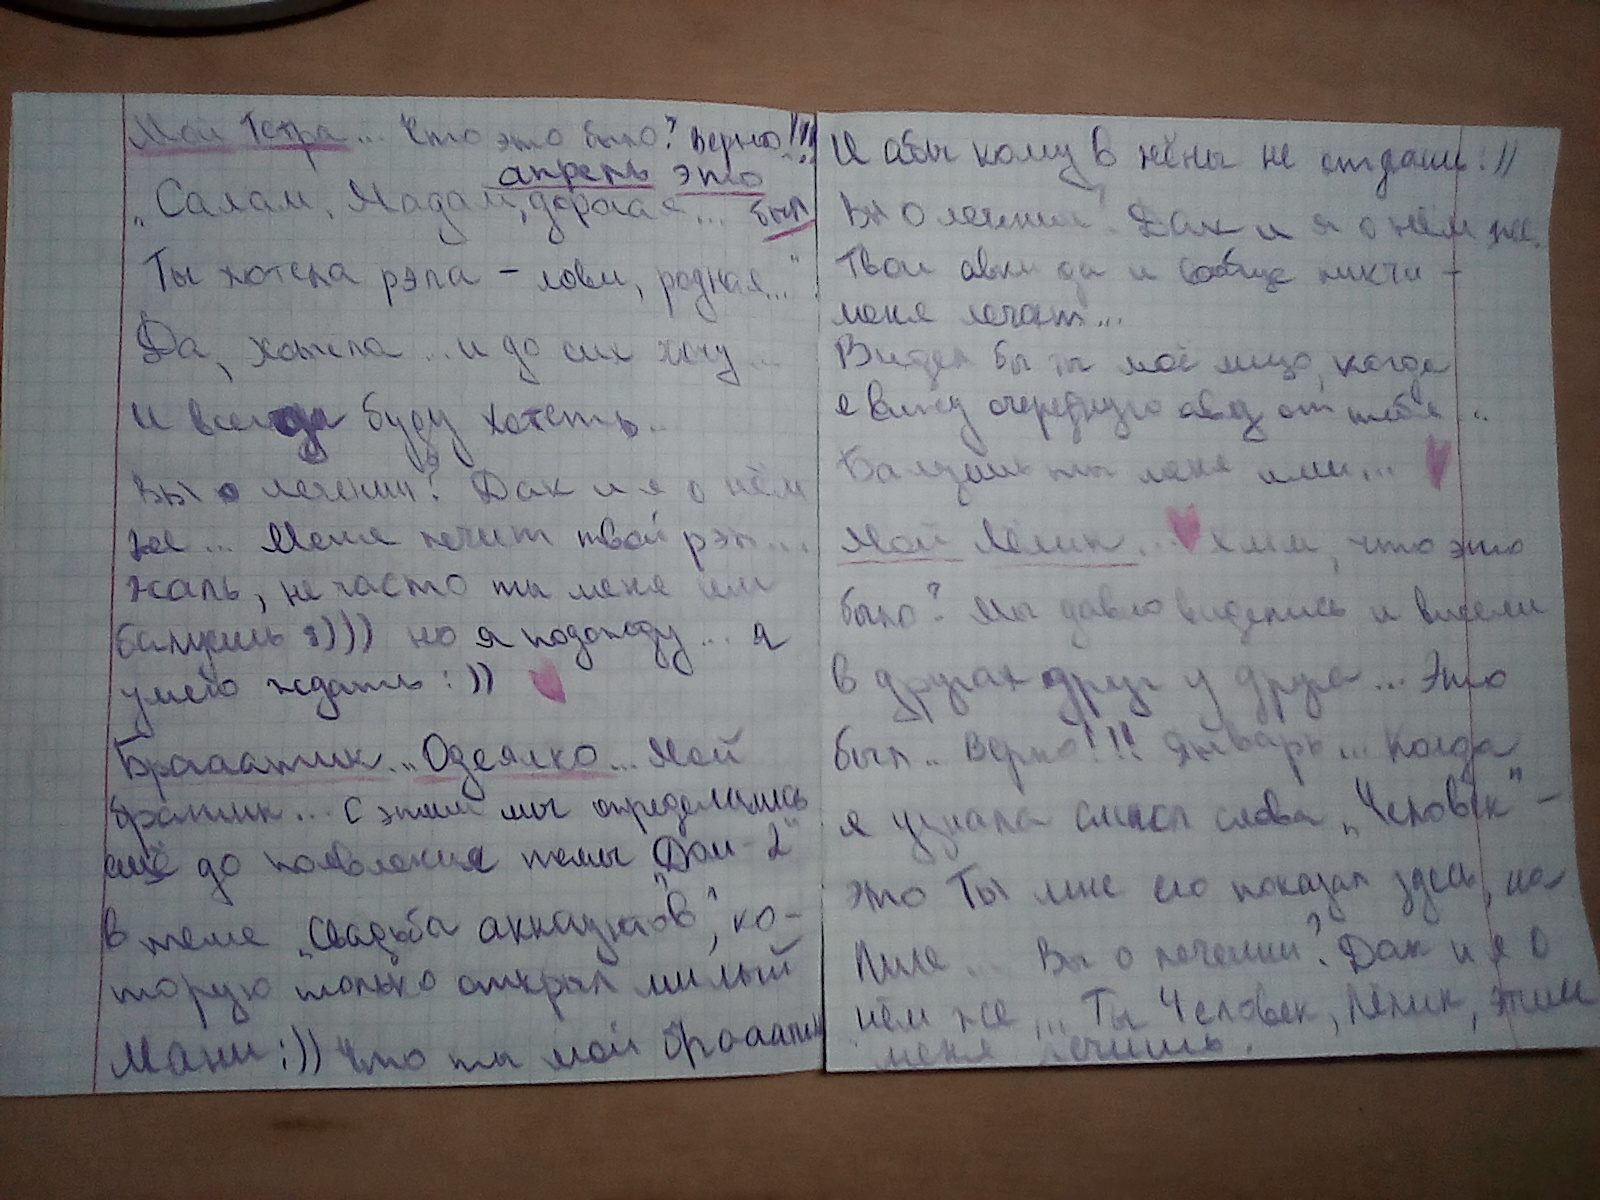 Мой Тетра... Что это было? Верно!!!
апрель это
„Салам, Мадам, дорогая... был
Ты хотела рэпа – лови, родная..."
Да, хотела... и до сих хочу...
И всегда буду хотеть..
Вы о лечении? Дак и я о нём
же... Меня лечит твой рэп...
жаль, не часто ты меня им
балуешь :))) но я подожду... я
умею ждать :))
Брааатик... Одеялко... Мой
братик... С этим мы определились
ещё до появления темы „Дом-2"
в теме „Свадьба аккаунтов", ко-
торую только открыл милый
Мани :)) Что ты мой брааатик
И абы кому в жёны не отдашь :))
Вы о лечении? Дак и я о нём же.
Твои авы да и сообще
меня лечат...
Видел бы ты моё лицо, когда
я вижу очередную аву от тебя...
Балуешь ты меня ими...
Мой Лёлик... хмм, что это
было? Мы давно виделись и висели
в друзьях друг у друга... Это
был.. Верно!!! Январь... Когда
я узнала смысл слова „Человек" –
это Ты мне его показал здесь, на
... Вы о лечении? Дак и я о
нём же... Ты Человек, Лёлик, этим
меня лечишь.